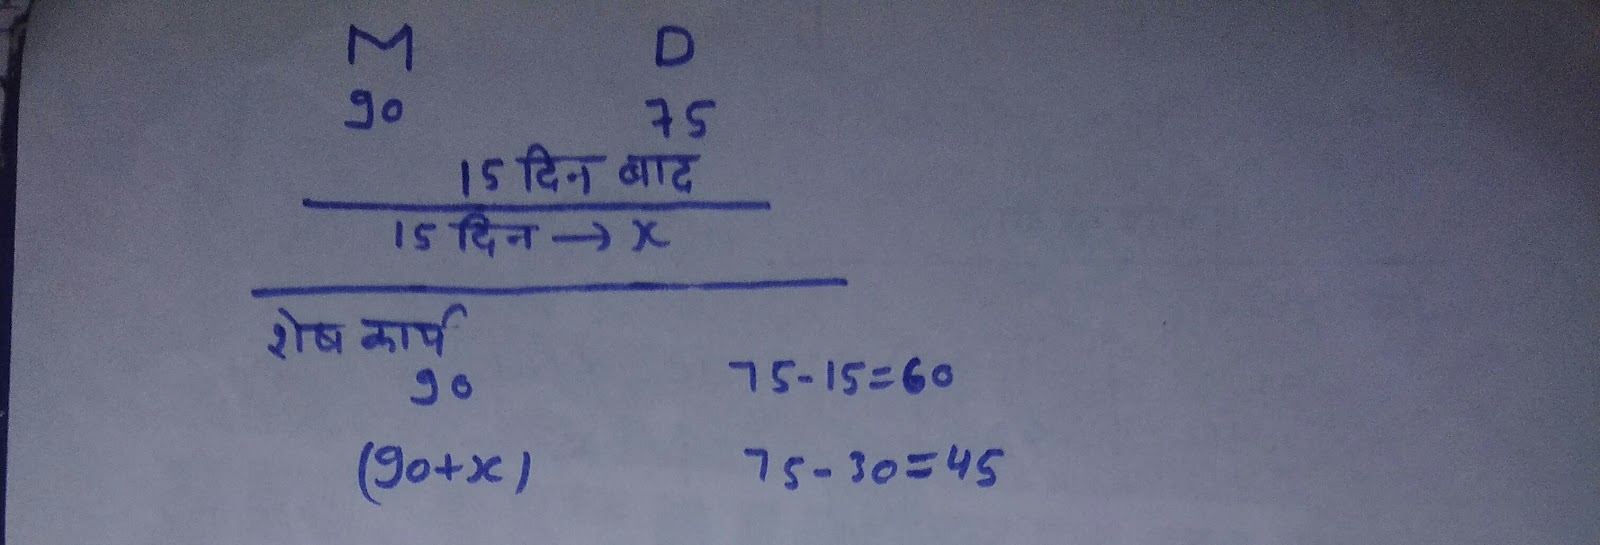 M D
90 75
15 दिन बाद
15 दिन → x
शेष कार्य
90 75-15=60
(90+x) 75-30=45